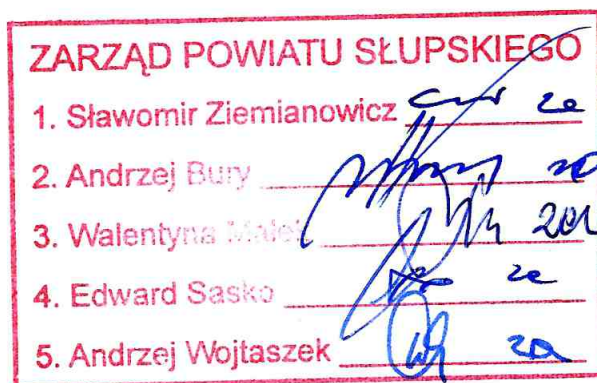 ZARZĄD POWIATU SŁUPSKIEGO
1. Sławomir Ziemianowicz
2. Andrzej Bury
3. Walentyna Małek
4. Edward Sasko
5. Andrzej Wojtaszek za